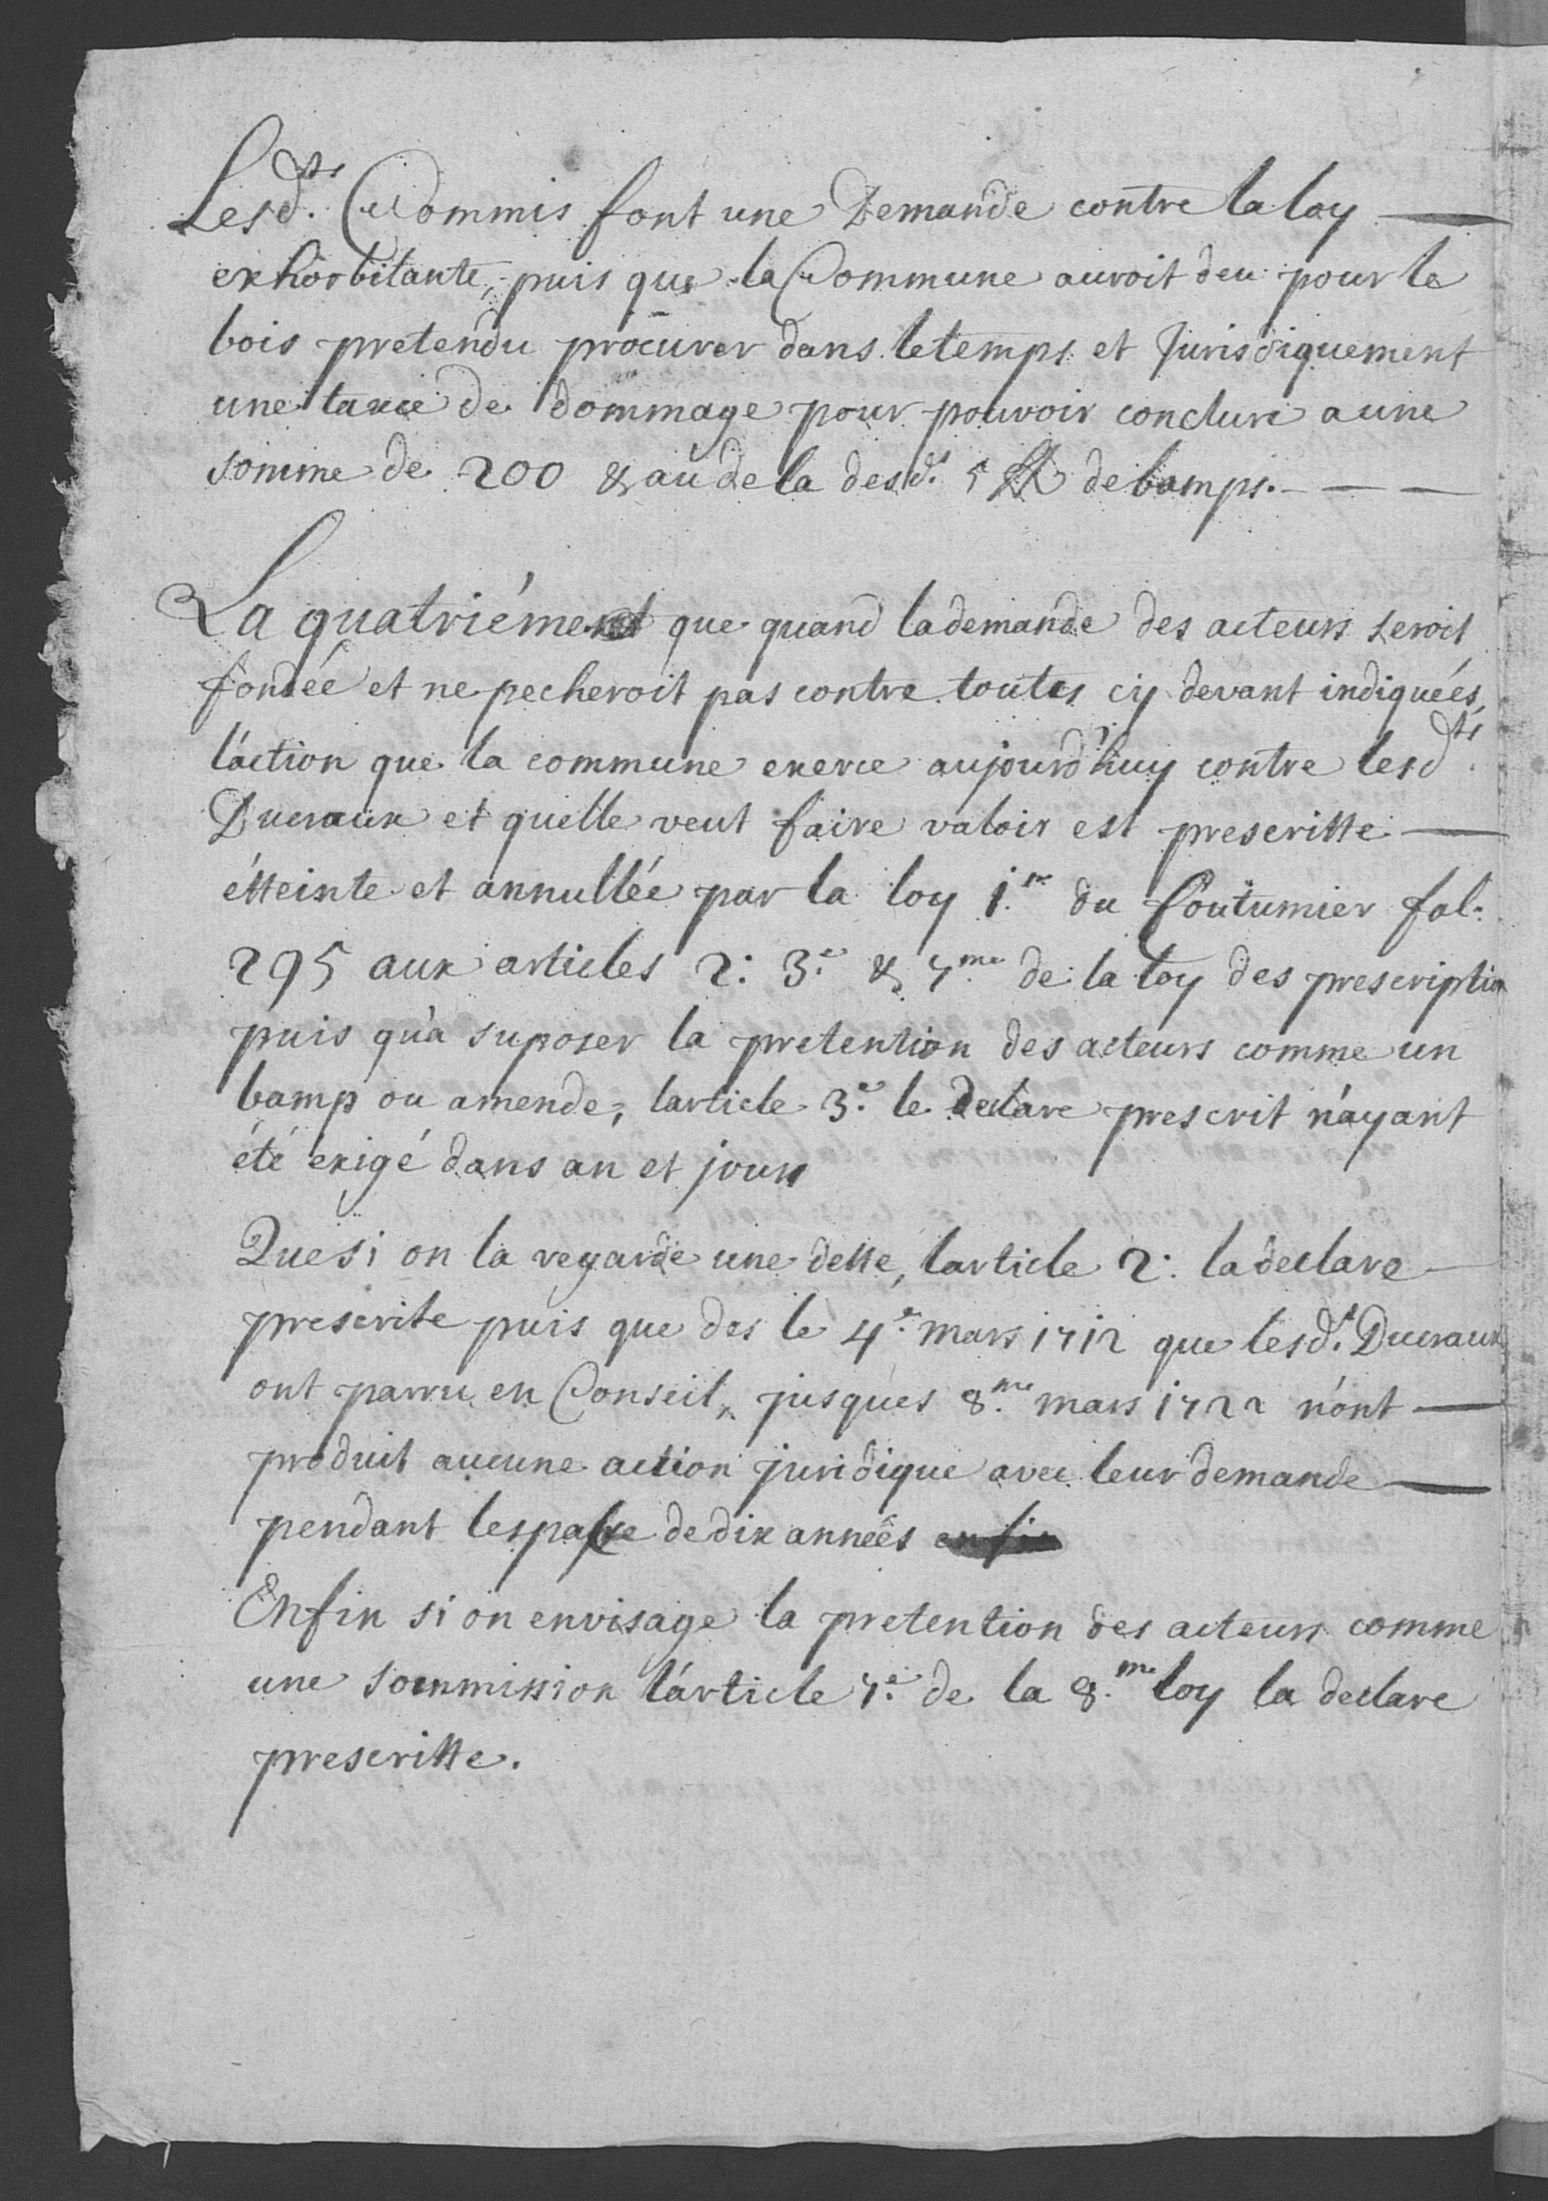 Lesd.ts Commis font une Demande contre la loy
exhorbitante, puis que la Commune auroit deu pour le
bois pretendu procurer dans le temps et Jurisdiquement
une taxe de dommage pour pouvoir conclure a une
somme de 200 & au de la desd.s 5 de bamps.
La quatriéme que quand la demande des acteurs seroit
fondée et ne pecheroit pas contre toutes cy devant indiquées,
l'action que la commune exerce aujourd'huy contre lesd.ts
Ducraux et quelle veut faire valoir est prescritte
étteinte et annullée par la loy 1.re du Coutumier fol.
295 aux articles 2: 3.e & 7.me de la loy des prescription
puis qu'a suposer la pretention des acteurs comme un
bamp ou amende, larticle 3.e le declare prescrit n'ayant
été exigé dans an et jours
Que si on la regarde une dette, larticle 2: la declare
prescrite puis que des le 4.e mars 1712 que lesd.s Ducraux
ont parru en Conseil, jusques 8.me mars 1722 n'ont
produit aucune action juridique avec leur demande
pendant lespasse de dix années enfin
Enfin si on envisage la pretention des acteurs comme
une soummission l'article 7.e de la 8.me loy la declare
prescritte.